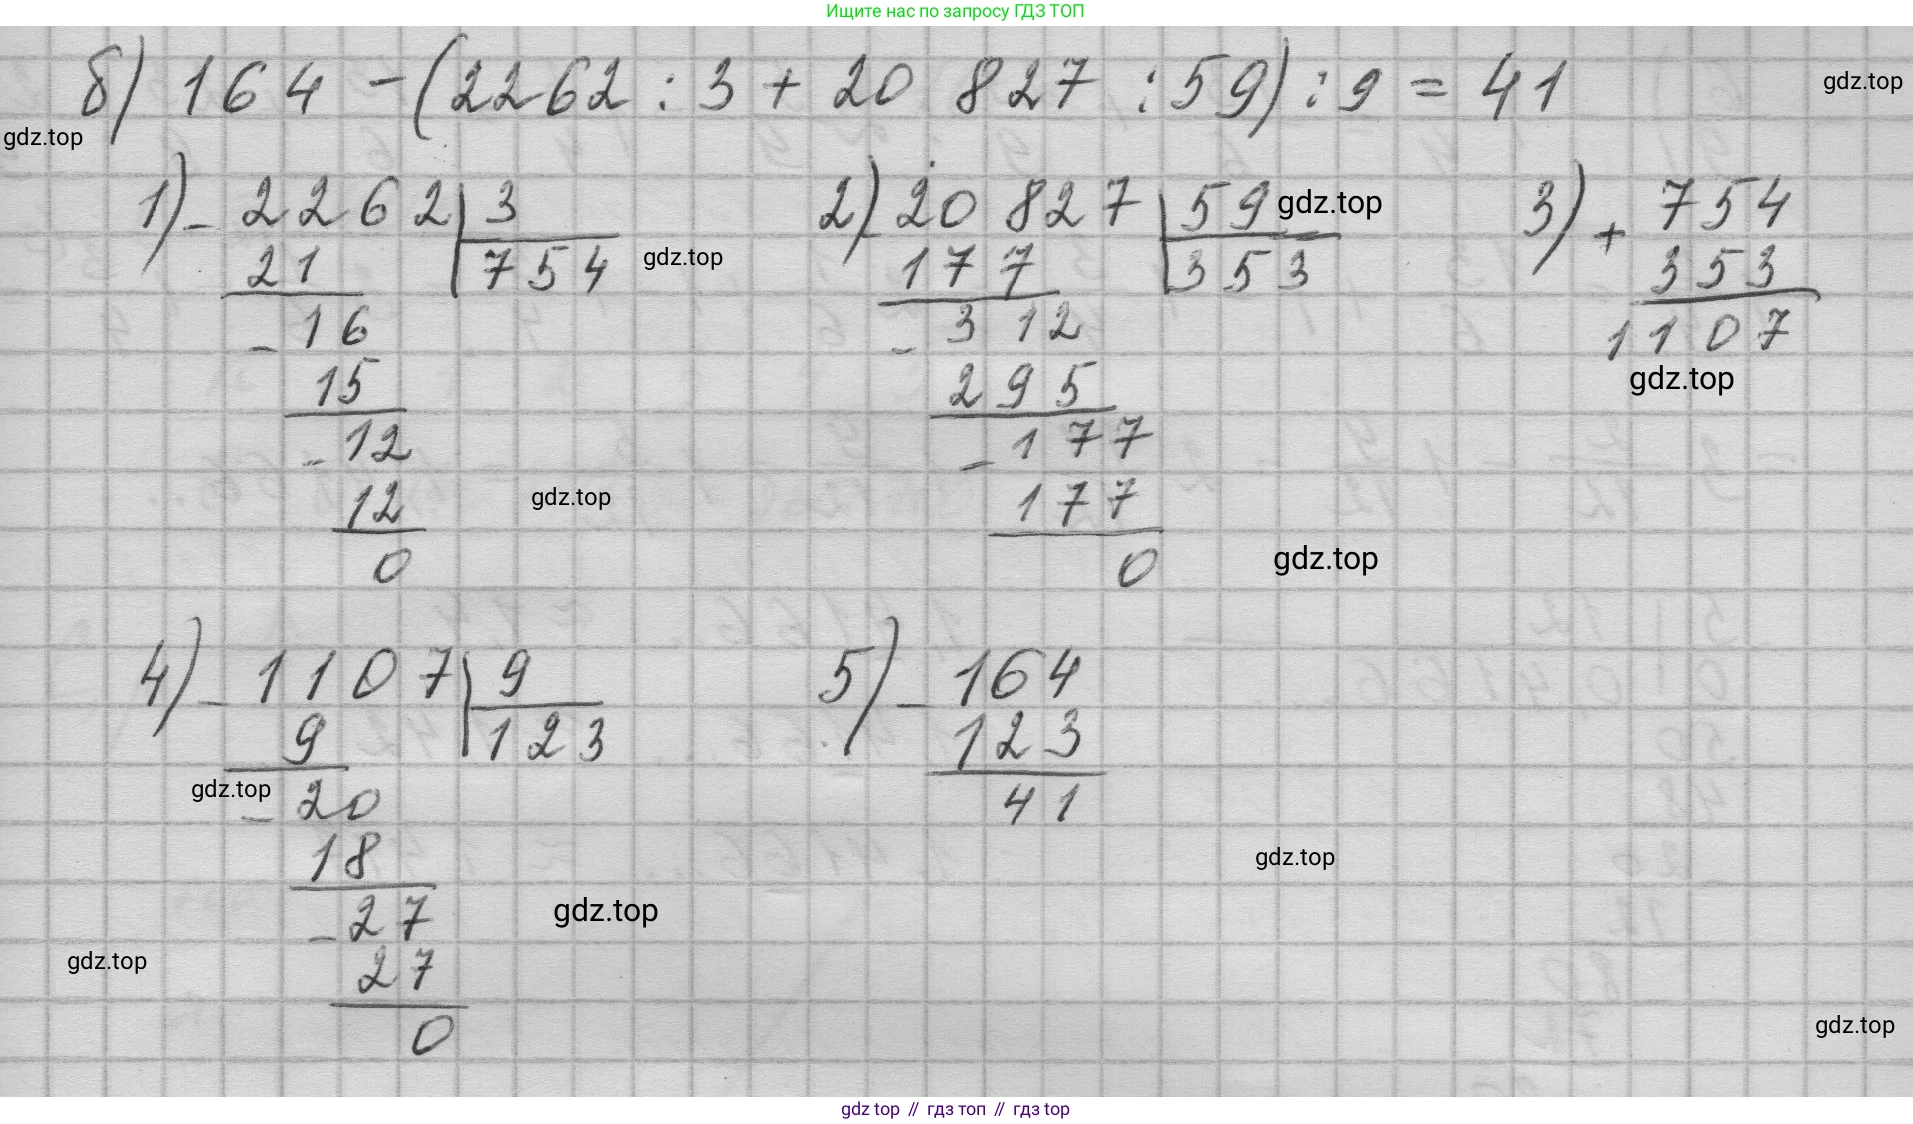 Ищите нас по запросу ГДЗ ТОП
б) 164 - (2262 : 3 + 20 827 : 59) : 9 = 41
gdz.top
gdz.top
1) - 2262 | 3
21 | 754
- 16
15
- 12
12
0
gdz.top
gdz.top
2) - 20 827 | 59
177 | 353
- 312
295
- 177
177
0
gdz.top
gdz.top
3) + 754
353
1107
gdz.top
4) - 1107 | 9
9 | 123
- 20
18
- 27
27
0
gdz.top
gdz.top
gdz.top
5) - 164
123
41
gdz.top
gdz.top
gdz top // гдз топ // гдз top